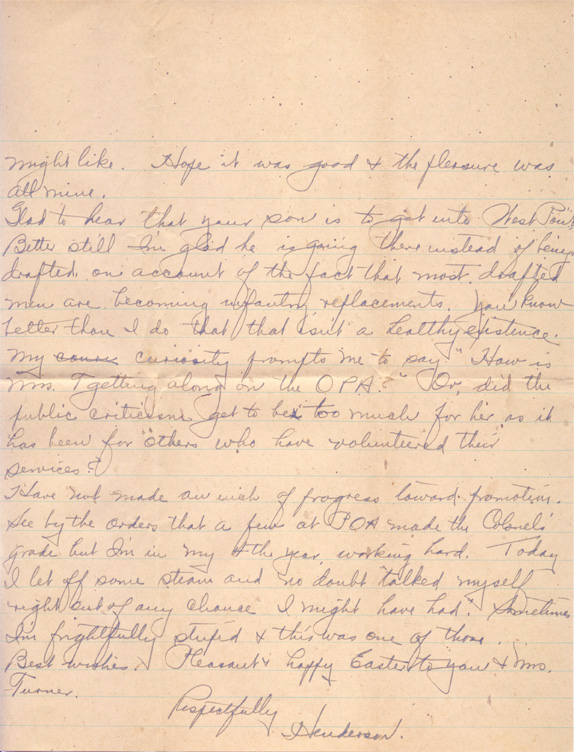 might like. Hope it was good & the pleasure was
all mine.
Glad to hear that your son is to get into West Point
Better still I'm glad he is going there instead of being
drafted, on account of the fact that most drafted
men are becoming infantry replacements. You know
better than I do that that isn't a healthy existence.
My curiosity prompts me to say "How is
Mrs. T getting along on the OPA?" Or, did the
public criticism get to be too much for her, as it
has been for others who have volunteered their
services?
Have not made an inch of progress toward promotion.
See by the orders that a few at POA made the Colonel's
grade but I'm in my 4th year, working hard. Today
I let off some steam and no doubt talked myself
right out of any chance I might have had. Sometimes
I'm frightfully stupid & this was one of those.
Best wishes. Pleasant & happy Easter to you & Mrs.
Turner.
Respectfully
Henderson.